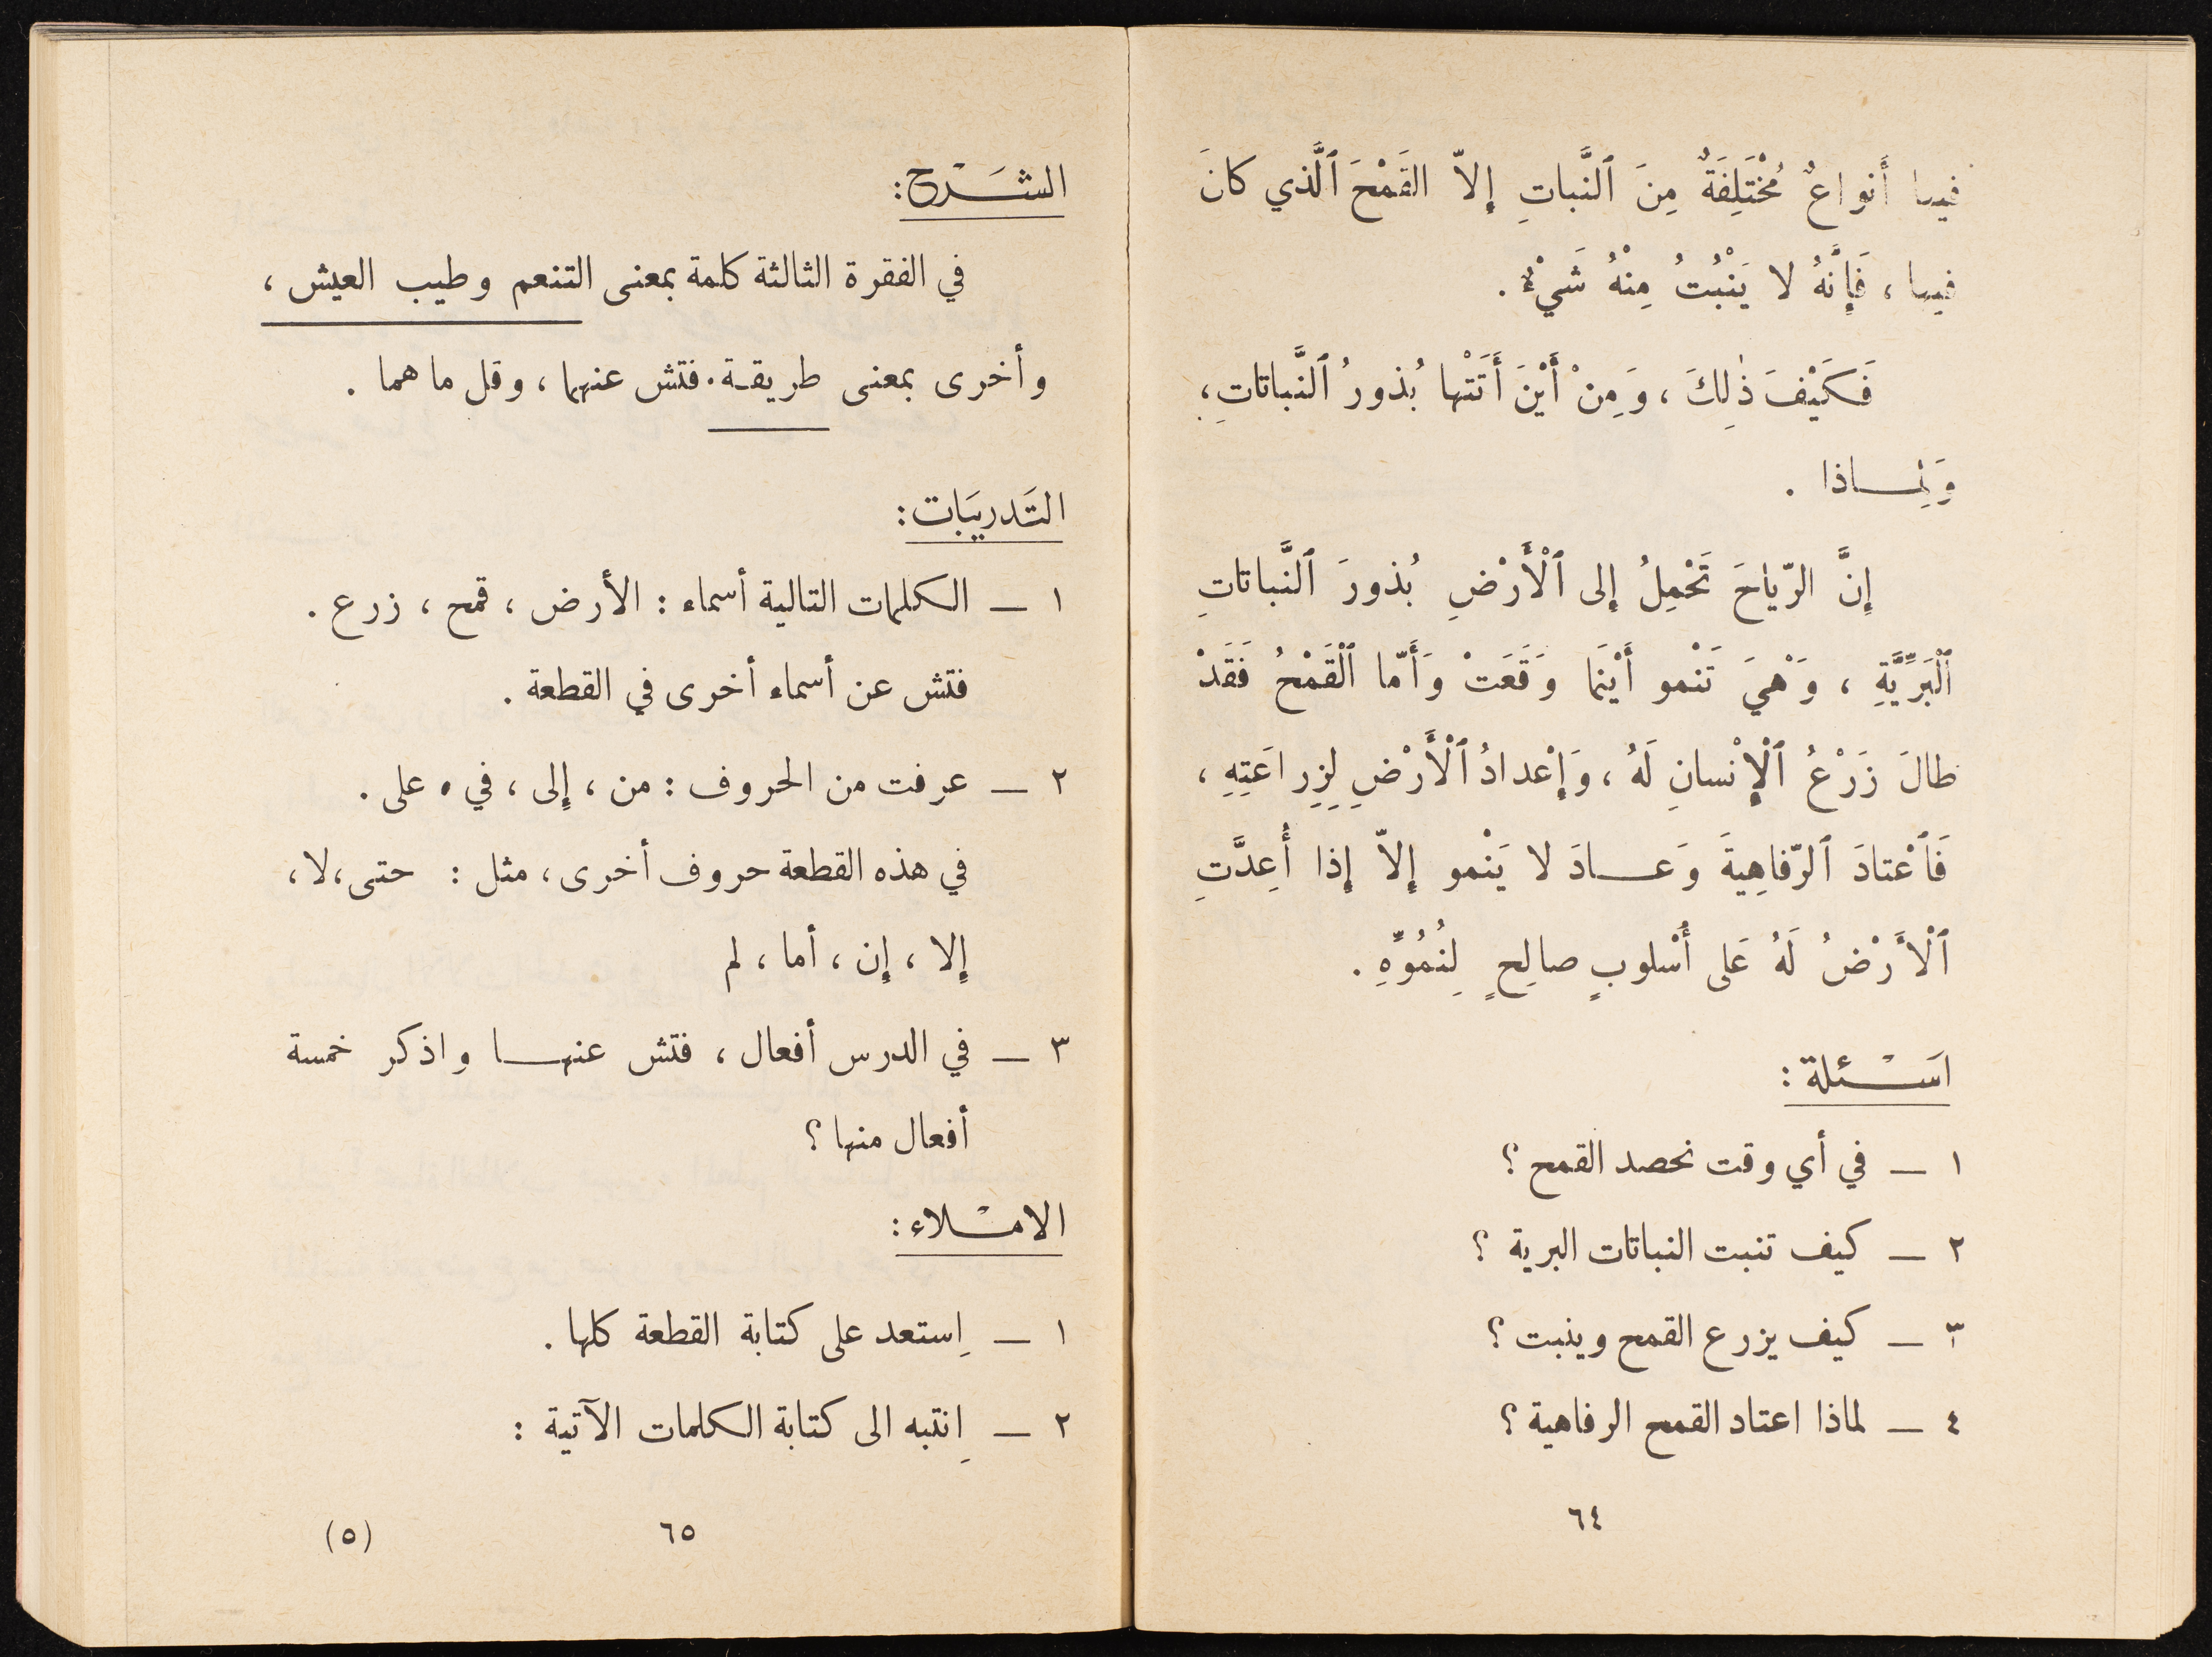 فيها أَنواعٌ مُخْتَلِفَةٌ مِنَ ٱلنَّباتِ إِلاّ القَمْحَ ٱلَّذي كانَ
فيها ، فَإِنَّهُ لا يَنْبُتُ مِنْهُ شَيْءٌ .
فَكَيْفَ ذٰلِكَ ، وَمِنْ أَيْنَ أَتَتْها بُذورُ ٱلنَّباتاتِ ،
وَلِمـــاذا .
إِنَّ الرّياحَ تَحْمِلُ إِلى ٱلْأَرْضِ بُذورَ ٱلنَّباتاتِ
ٱلْبَرِّيَّةِ ، وَهْيَ تَنْمو أَيْنَما وَقَعَتْ وَأَمّا ٱلْقَمْحُ فَقَدْ
طالَ زَرْعُ ٱلْإِنْسانِ لَهُ ، وَإِعْدادُ ٱلْأَرْضِ لِزِراعَتِهِ ،
فَٱعْتادَ ٱلرّفاهِيةَ وَعـــادَ لا يَنْمو إِلاّ إِذا أُعِدَّتِ
ٱلْأَرْضُ لَهُ عَلى أُسْلوبٍ صالِحٍ لِنُمُوِّهِ .
اَسْـــئلة :
١ ــ في أي وقت نحصد القمح ؟
٢ ــ كيف تنبت النباتات البرية ؟
٣ ــ كيف يزرع القمح وينبت ؟
٤ ــ لماذا اعتاد القمح الرفاهية ؟
٦٤
الشَـــرْح :
في الفقرة الثالثة كلمة بمعنى التنعم وطيب العيش ،
وأخرى بمعنى طريقـة . فتش عنهما ، وقل ما هما .
التَدريبَات :
١ ــ الكلمات التالية أسماء : الأرض ، قمح ، زرع .
فتش عن أسماء أخرى في القطعة .
٢ ــ عرفت من الحروف : من ، إلى ، في ، على .
في هذه القطعة حروف أخرى ، مثل : حتى ، لا ،
إلا ، إن ، أما ، لم
٣ ــ في الدرس أفعال ، فتش عنهـــا واذكر خمسة
أفعال منها ؟
الامْـــلاء :
١ ــ اِستعد على كتابة القطعة كلها .
٢ ــ اِنتبه الى كتابة الكلمات الآتية :
٦٥
(٥)